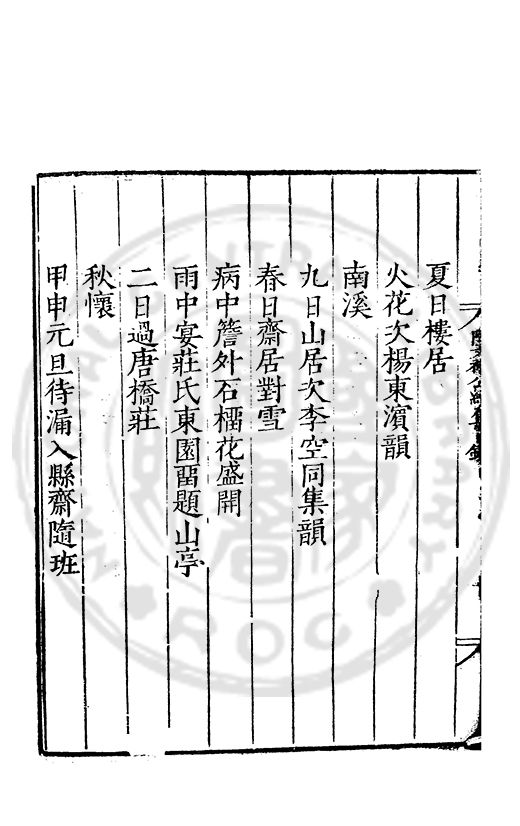 夏日樓居
火花次楊東濱韻
南溪
九日山居次李空同集韻
春日齋居對雪
病中簷外石榴花盛開
雨中宴莊氏東園畱題山亭
二日過唐橋莊
秋懷
甲申元旦待漏入縣齋隨班